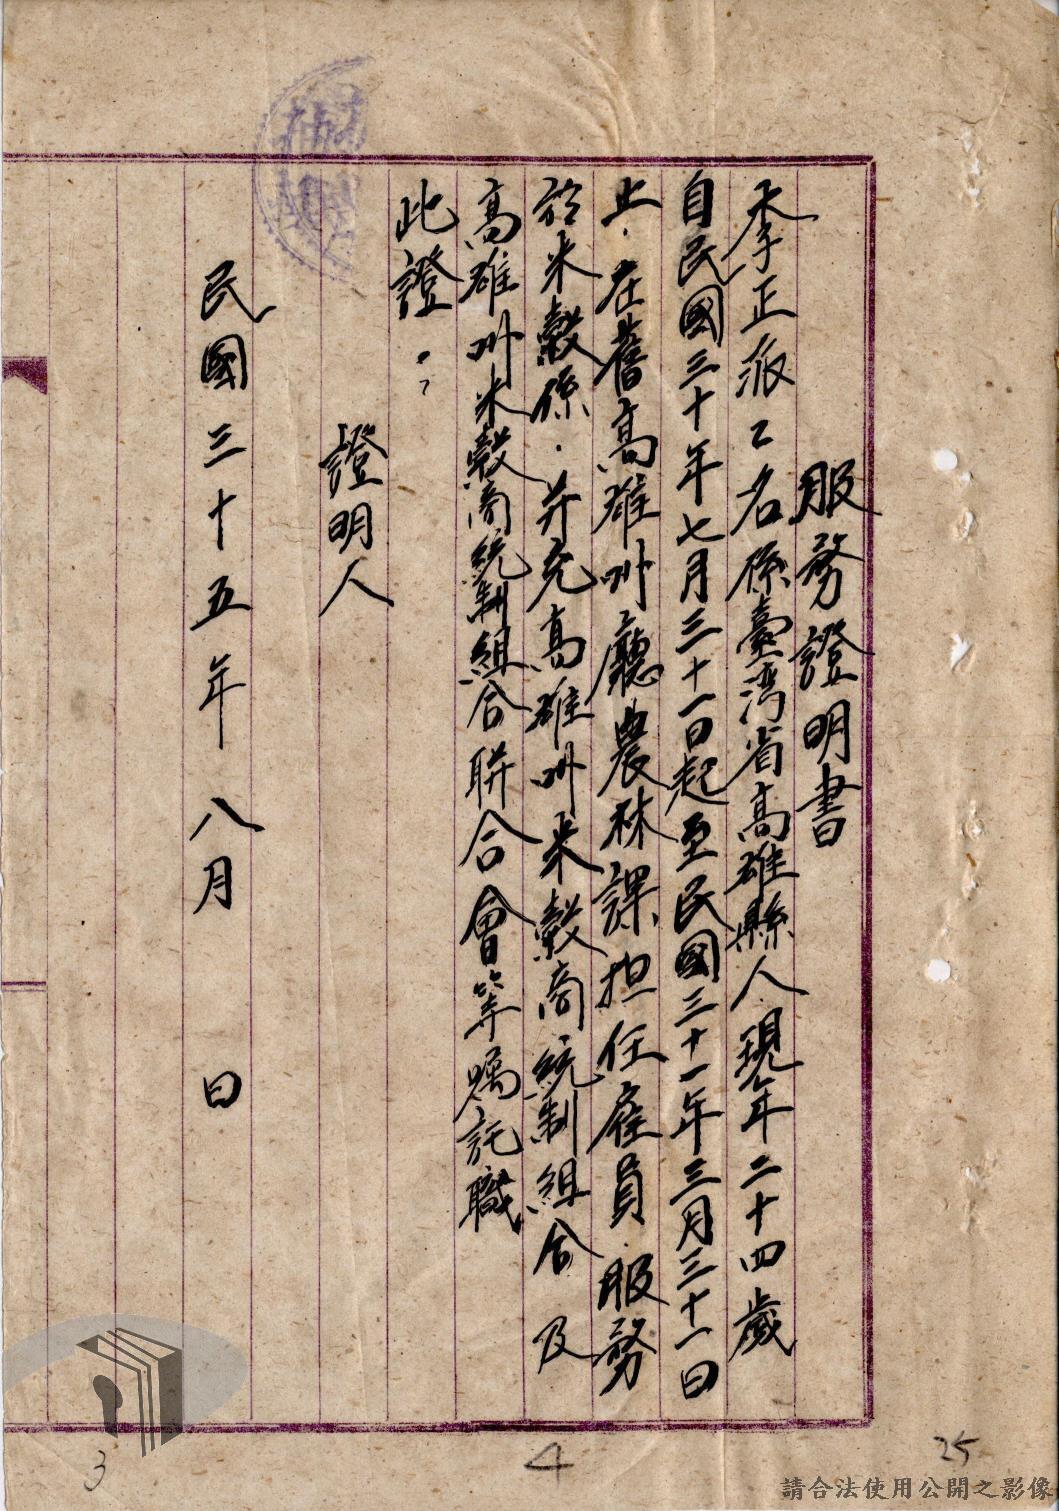 服務證明書
李正派乙名係臺湾省高雄縣人現年二十四歲
自民國三十年七月三十一日起至民國三十一年三月三十一日
止．在舊高雄州廳農林課担任雇員．服務
於米穀係．并充高雄州米穀商統制組合及
高雄州米穀商統制組合聯合會等嘱託職
此證．．
證明人
民國三十五年八月　日
3
4
25
請合法使用公開之影像